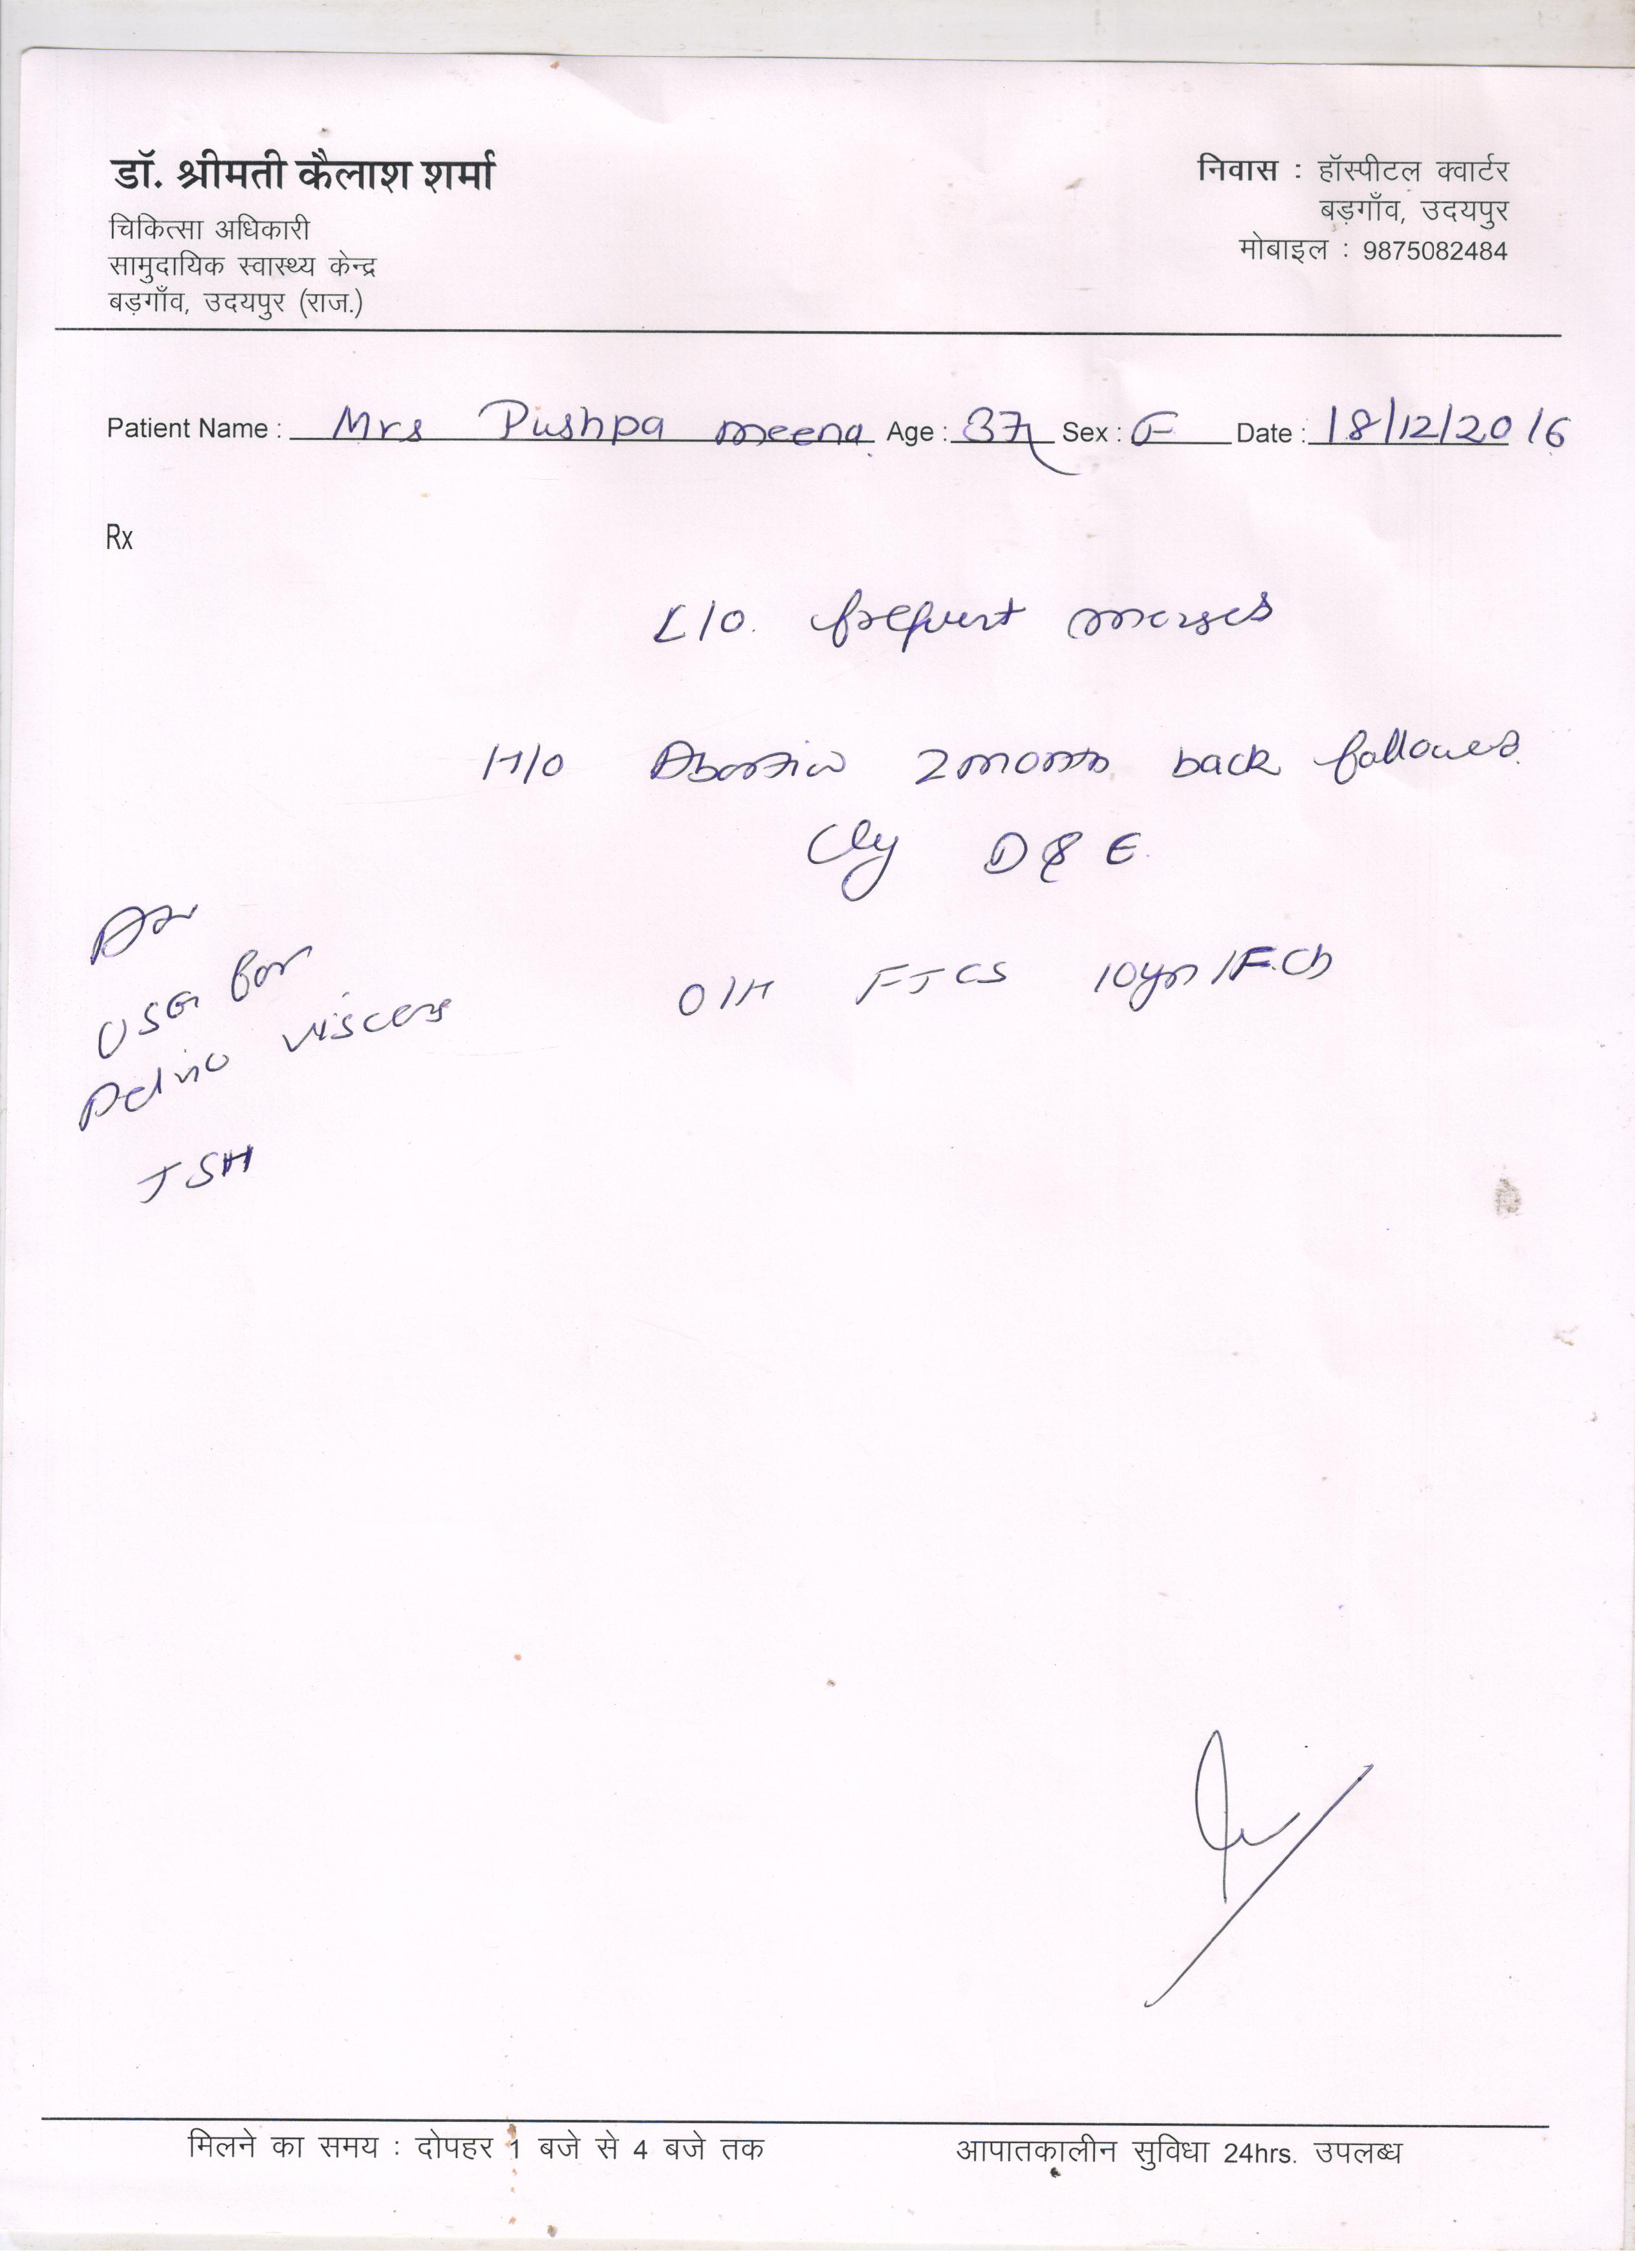 डॉ. श्रीमती कैलाश शर्मा
चिकित्सा अधिकारी
सामुदायिक स्वास्थ्य केन्द्र
बड़गाँव, उदयपुर (राज.)
निवास : हॉस्पीटल क्वार्टर
बड़गाँव, उदयपुर
मोबाइल : 9875082484
Patient Name : Mrs Pushpa meena Age : 37 Sex : F Date : 18/12/2016
Rx
C/O. frequent menses
H/O Abortion 2 month back followed
by D & E
O/H FTCS 10yrs / F.Ch
Adv
USG for
Pelvic viscera
TSH
मिलने का समय : दोपहर 1 बजे से 4 बजे तक
आपातकालीन सुविधा 24hrs. उपलब्ध